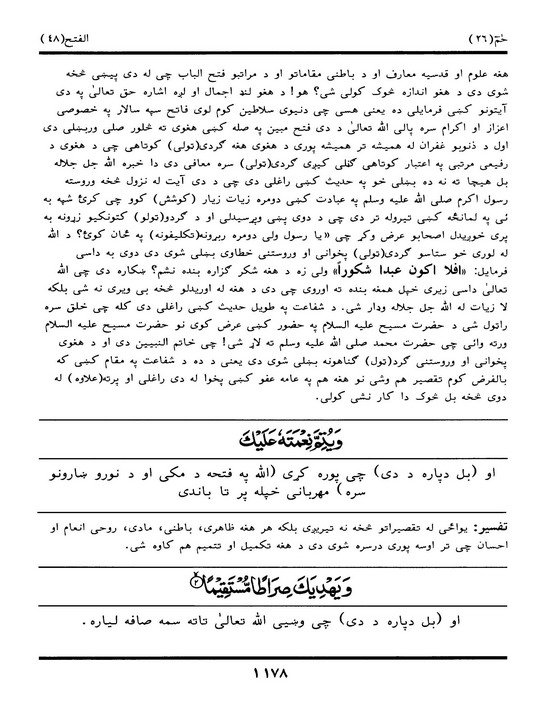 حٰمٓ (٢٦) الفتح(٤٨)
هغه علوم او قدسیه معارف او د باطنی مقاماتو او د مراتبو فتح الباب چی له دی پیښی څخه
شوی دی د هغو اندازه څوک کولی شی؟ هو! د هغو لنډ اجمال او لږه اشاره حق تعالیٰ په دی
آیتونو کښی فرمایلی ده یعنی هسی چی دنیوی سلاطین کوم لوی فاتح سپه سالار په خصوصی
اعزاز او اکرام سره پالی الله تعالیٰ د دی فتح مبین په صله کښی هغوی ته څلور صلی وربښلی دی
اول د ذنوبو غفران له همیشه تر همیشه پوری د هغوی هغه گردی(تولی) کوتاهی چی د هغوی د
رفیعی مرتبی په اعتبار کوتاهی گڼلی کیږی گردی(تولی) سره معافی دی دا خبره الله جل جلاله
بل هیچا ته نه ده ښلی خو په حدیث کښی راغلی دی چی د دی آیت له نزول څخه وروسته
رسول اکرم صلی الله علیه وسلم په عبادت کښی دومره زیات زیار (کوشش) کوو چی کرئ شپه به
ئی په لمانځه کښی تیروله تر دی چی د دوی پښی وپړسیدلی او د گردو(تولو) کتونکیو زړونه به
پری خوږیدل اصحابو عرض وکړ چی «یا رسول ولی دومره ربړونه(تکلیفونه) په ځان کوئ؟ د الله
له لوری خو ستاسو گردی(تولی) پخوانی او وروستنی خطاوی بښلی شوی دی دوی به داسی
فرمایل: «افلا اکون عبدا شکوراً» ولی زه د هغه شکر گزاره بنده نشم؟ ښکاره دی چی الله
تعالیٰ داسی زیری خپل همغه بنده ته اوروی چی دی د هغه له اوریدلو څخه بی ویری نه شی بلکه
لا زیات له الله جل جلاله ودار شی. د شفاعت په طویل حدیث کښی راغلی دی کله چی خلق سره
راتول شی د حضرت مسیح علیه السلام په حضور کښی عرض کوی نو حضرت مسیح علیه السلام
ورته وائی چی حضرت محمد صلی الله علیه وسلم ته لاړ شی! چی خاتم النبیین دی او د هغوی
پخوانی او وروستنی گرد(تول) گناهونه بښلی شوی دی یعنی د ده د شفاعت په مقام کښی که
بالفرض کوم تقصیر هم وشی نو هغه هم په عامه عفو کښی پخوا له دی راغلی او پرته(علاوه) له
دوی څخه بل څوک دا کار نشی کولی.
وَيُتِمَّ نِعْمَتَهٗ عَلَيْكَ
او (بل دپاره د دی) چی پوره کړی (الله په فتحه د مکی او د نورو ښارونو
سره) مهربانی خپله پر تا باندی
تفسیر: یوائی له تقصیراتو څخه نه تیریږی بلکه هر هغه ظاهری، باطنی، مادی، روحی انعام او
احسان چی تر اوسه پوری درسره شوی دی د هغه تکمیل او تتمیم هم کاوه شی.
وَيَهْدِيَكَ صِرَاطًا مُّسْتَقِيْمًا ۙ‏﴿٢﴾
او (بل دپاره د دی) چی وښیی الله تعالیٰ تاته سمه صافه لیاره.
١١٧٨